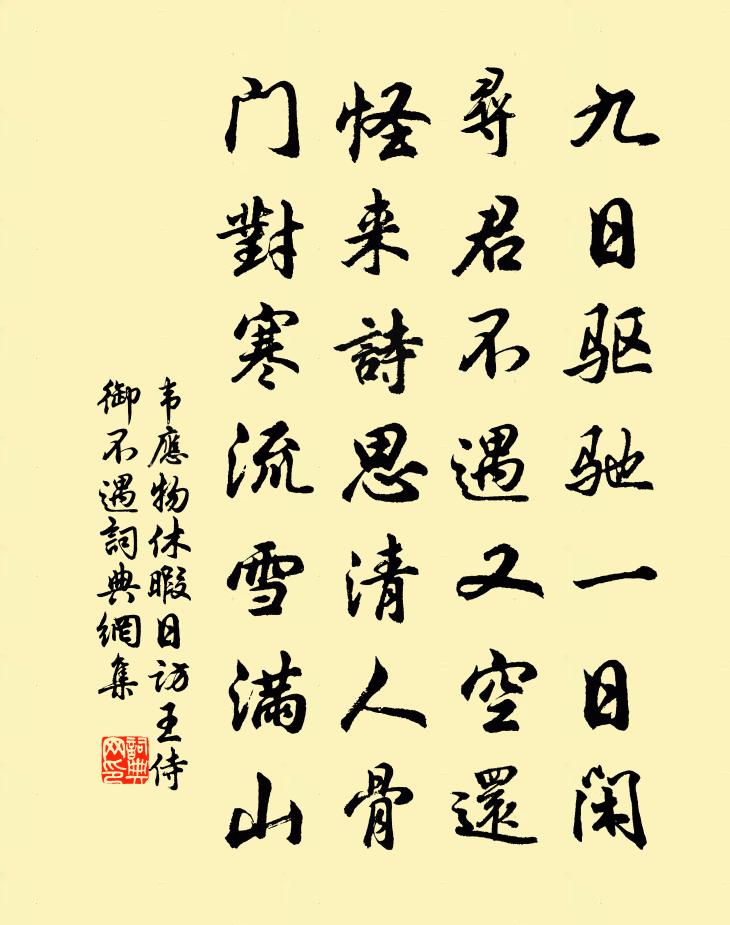 九日驱驰一日闲
尋君不遇又空還
怪来詩思清人骨
门對寒流雪满山
韦應物休暇日访王侍
御不遇詞典網集
詞典
网印